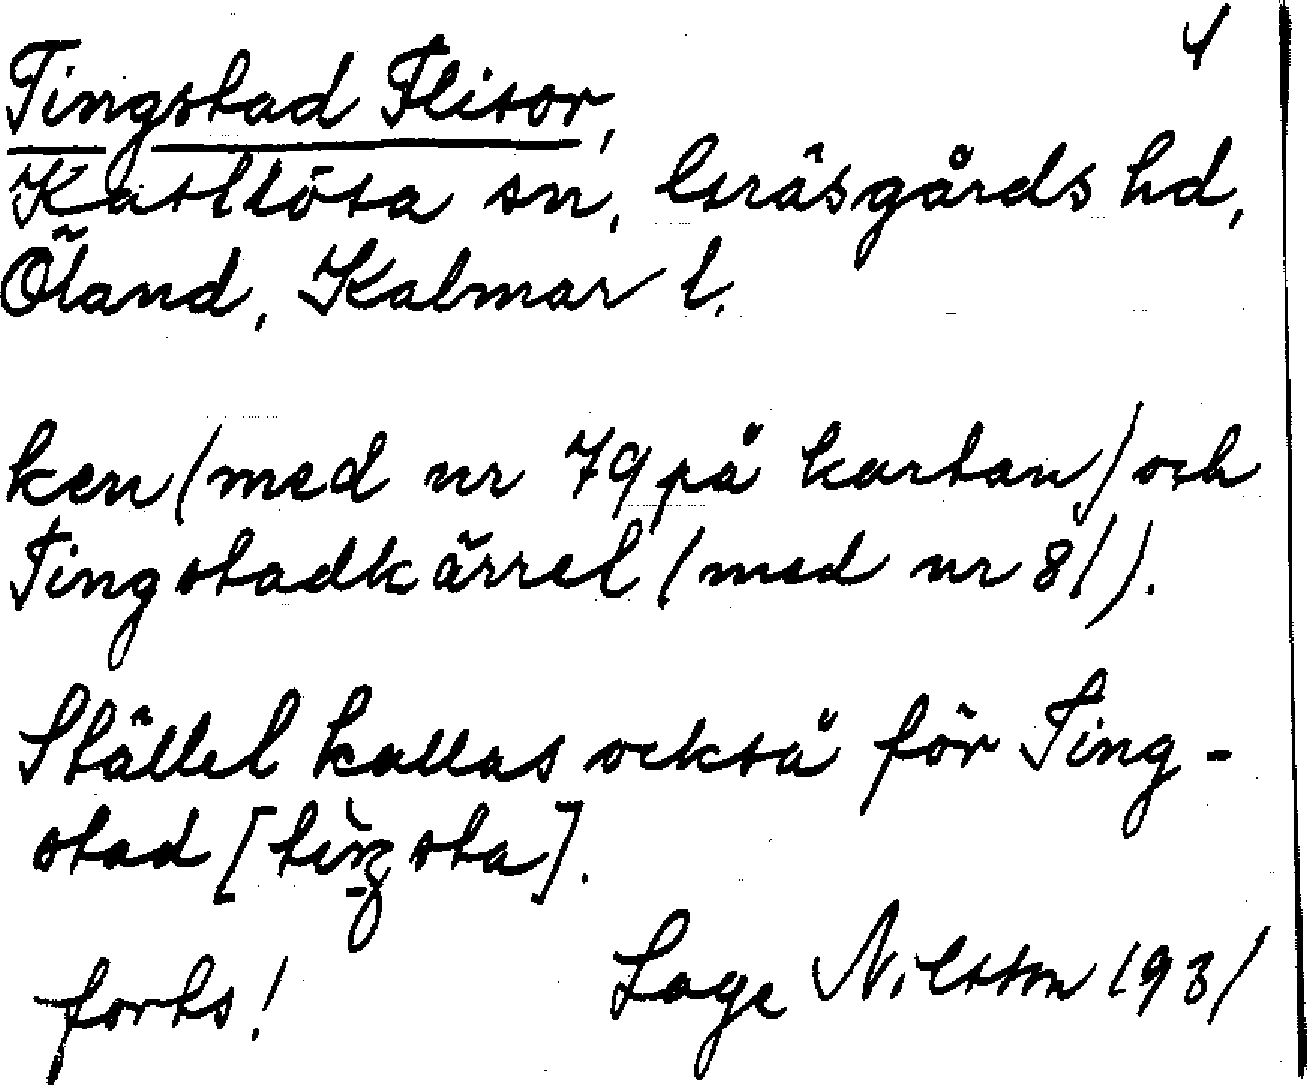 4
Tingstad Flisor,
Kastlösa sn, Gräsgårds hd,
Öland, Kalmar l.
ken (med nr 79 på kartan) och
Tingstadkärret (med nr 81).
Stället kallas också för Ting-
stad [tìŋsta].
forts! Sage Nilsson 1931